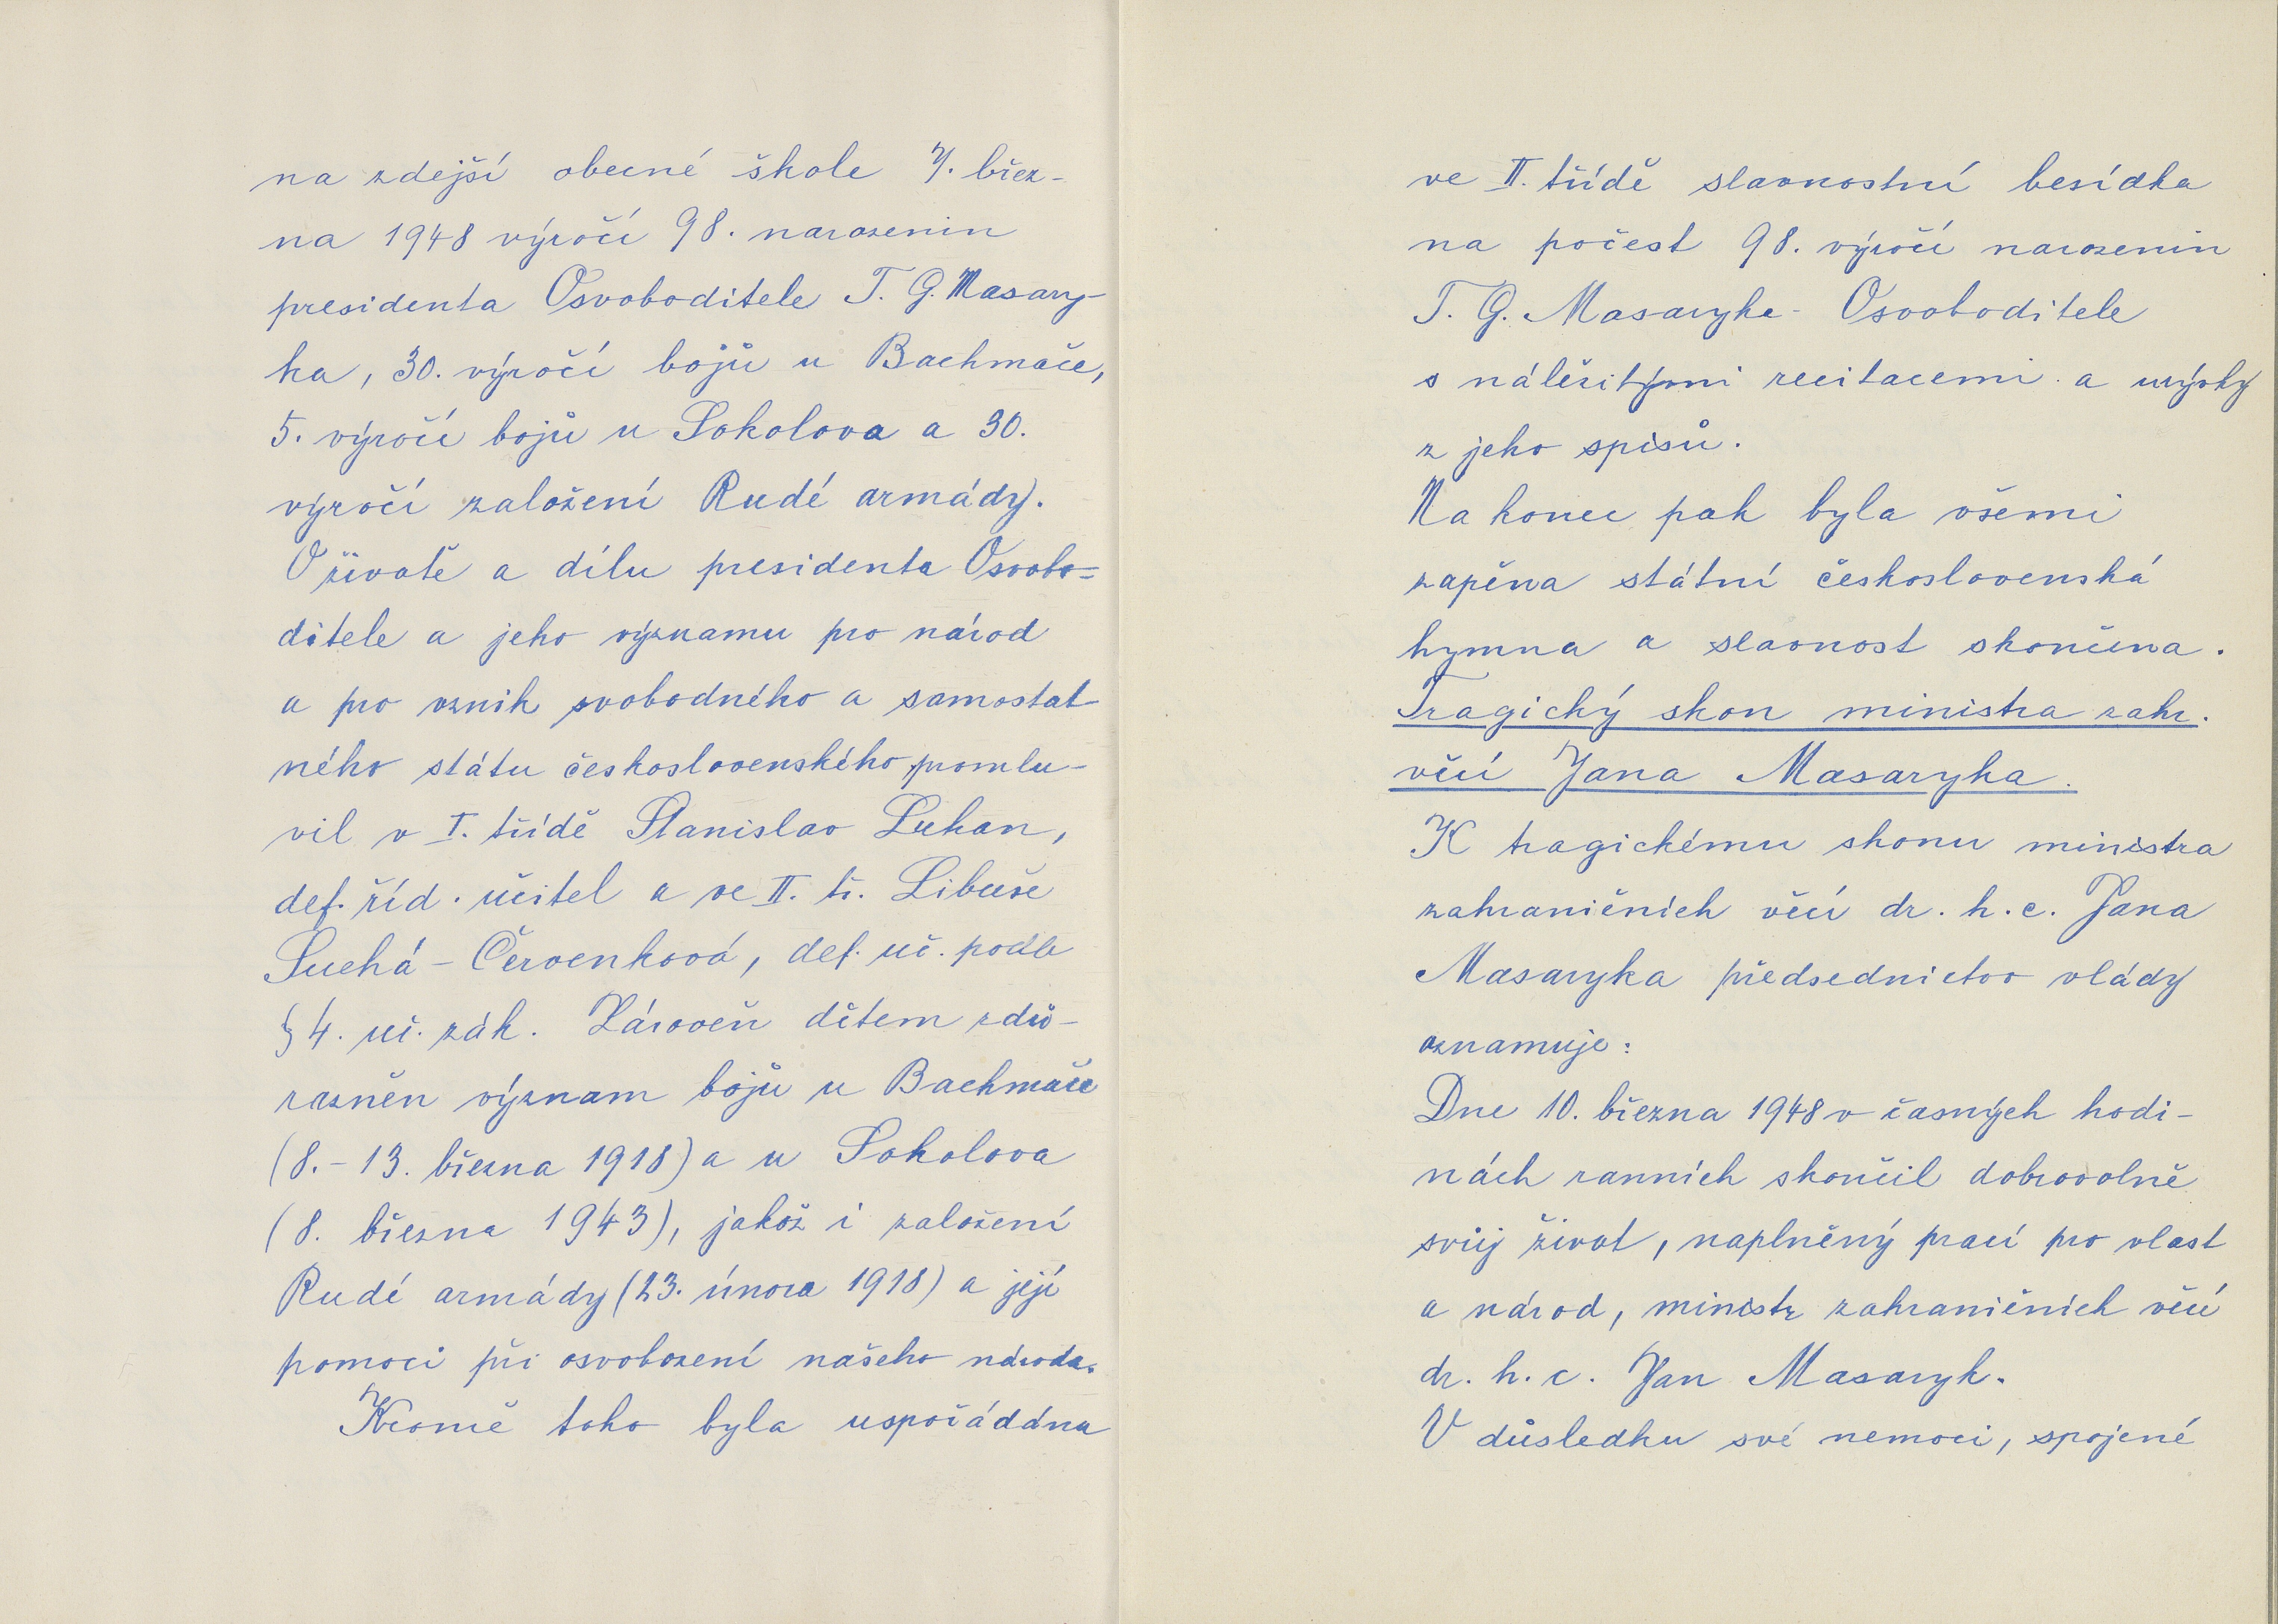 na zdejší obecné škole 7. břez-
na 1948 výročí 98. narozenin
presidenta Osvoboditele T. G. Masary-
ka, 30. výročí bojů u Bachmače,
5. výročí bojů u Sokolova a 30.
výročí založení Rudé armády.
O životě a dílu presidenta Osvobo=
ditele a jeho významu pro národ
a pro vznik svobodného a samostat-
ného státu československého promlu-
vil v I. třídě Stanislav Luhan,
def. říd. učitel a ve II. tř. Libuše
Suchá - Červenková, def. uč. podle
§ 4. uč. zák. Zároveň dětem zdů-
razněn význam bojů u Bachmače
(8. - 13. března 1918) a u Sokolova
(8. března 1943), jakož i založení
Rudé armády (23. února 1918) a její
pomoci při osvobození našeho národa.
Kromě toho byla uspořádána
ve II. třídě slavnostní besídka
na počest 98. výročí narozenin
T. G. Masaryka - Osvoboditele
s náležitými recitacemi a úryvky
z jeho spisů.
Na konec pak byla všemi
zapěna státní československá
hymna a slavnost skončena.
Tragický skon ministra zahr.
věcí Jana Masaryka.
K tragickému skonu ministra
zahraničních věcí dr. h. c. Jana
Masaryka předsednictvo vlády
oznamuje:
Dne 10. března 1948 v časných hodi-
nách ranních skončil dobrovolně
svůj život, naplněný prací pro vlast
a národ, ministr zahraničních věcí
dr. h. c. Jan Masaryk.
V důsledku své nemoci, spojené